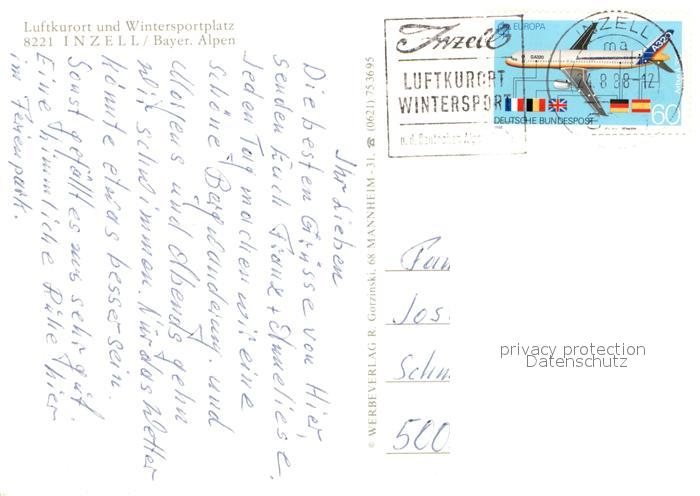 Luftkurort und Wintersportplatz
8221 INZELL / Bayer. Alpen
Ihr Lieben
Die besten Grüsse von Hier,
senden Euch Franz + Anneliese.
Jeden Tag machen wir eine
schöne Bergwanderung und
Morgens und Abends gehn
wir schwimmen. Nur das Wetter
könnte etwas besser sein.
Sonst gefällt es uns sehr gut
Eine himmliche Ruhe hier
im Ferienpark.
© WERBEVERLAG R. Gorzinski, 68 MANNHEIM - 31, ☎ (0621) 753695
Inzell
LUFTKURORT
WINTERSPORT
a. d. Deutschen Alpenstr.
INZELL
8.88-12
EUROPA
A320
DEUTSCHE BUNDESPOST
60
Fam
Jos.
Schm
500
privacy protection
Datenschutz